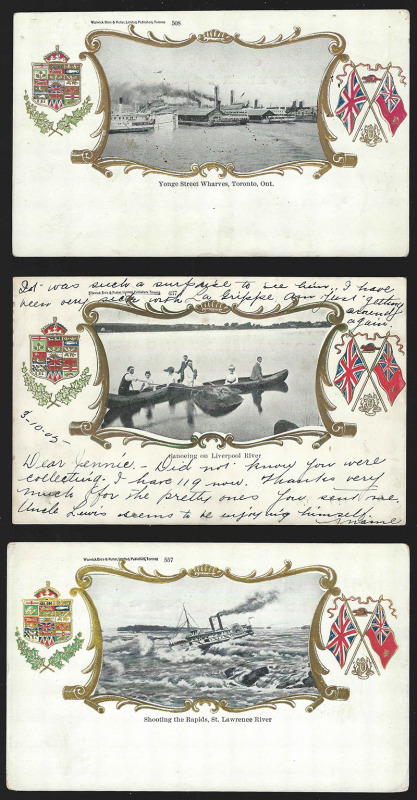 Warwick Bro's & Rutter, Limited, Publishers, Toronto 508
Yonge Street Wharves, Toronto, Ont.
It was such a surprise to see him. I have
been very sick with La Grippe am just getting
around
again.
Warwick Bro's & Rutter, Limited, Publishers, Toronto 637
3-10-05-
Canoeing on Liverpool River
Dear Jennie, - Did not know you were
collecting. I have 119 now. Thanks very
much for the pretty ones you sent me.
Uncle Lewis seems to be enjoying himself.
Warwick Bro's & Rutter, Limited, Publishers, Toronto 557
Shooting the Rapids, St. Lawrence River